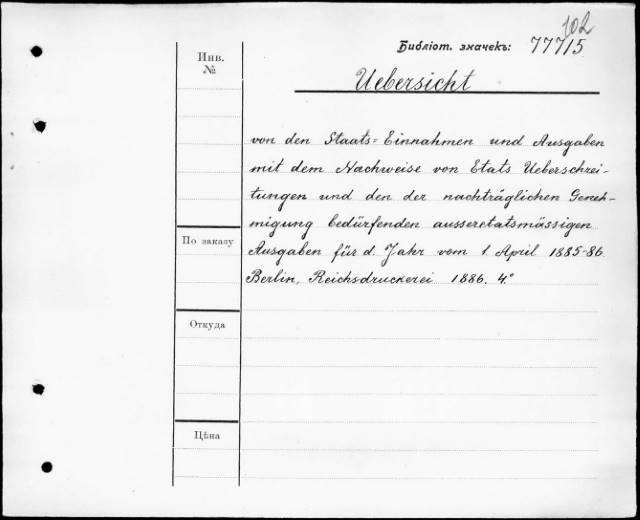 102
Библіот. значекъ: 77715
Uebersicht
Инв.
№
von den Staats=Einnahmen und Ausgaben
mit dem Nachweise von Etats Ueberschrei-
tungen und den der nachträglichen Geneh-
migung bedürfenden ausseretatsmässigen
Ausgaben für d. Jahr vom 1. April 1885-86.
Berlin, Reichsdruckerei 1886. 4.°
По заказу
Откуда
Цѣна